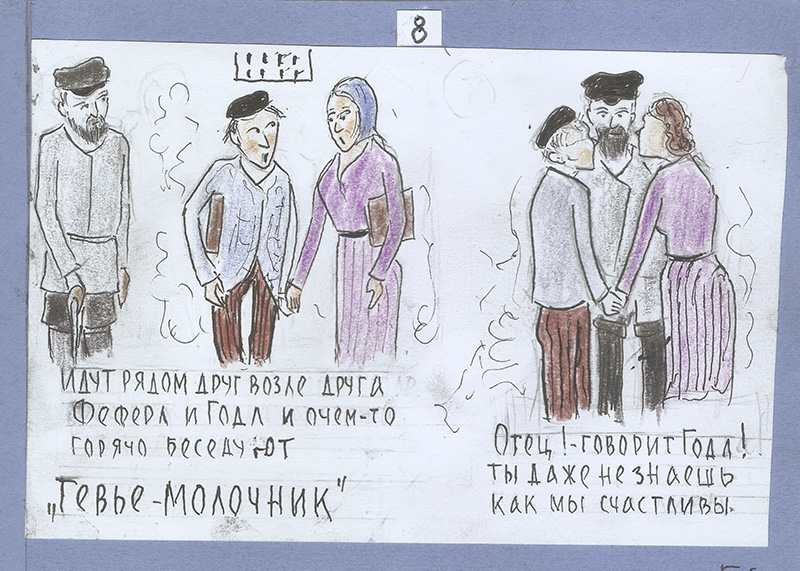 8
Идут рядом друг возле друга
Феферл и Годл и очем-то
горячо беседуют
"Тевье-молочник"
Отец!-говорит Годл!
ты даже не знаешь
как мы счастливы.